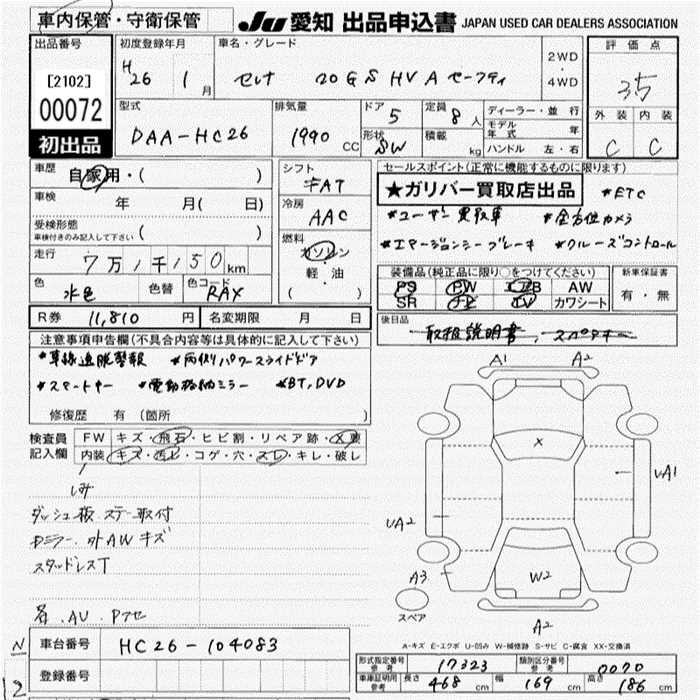 車内保管・守衛保管 JU 愛知 出品申込書 JAPAN USED CAR DEALERS ASSOCIATION
出品番号 初度登録年月 車名・グレード 評価点
[2102] H26 1月 セレナ 20GS HV A セーフティ 2WD・4WD 3.5
00072 型式 排気量 ドア 定員 ディーラー・並行 外装 内装
DAA-HC26 1990 CC 5 8人 モデル年式 年 C C
初出品 形状 SW 積載 kg ハンドル 左・右
車歴 自家用・( ) シフト セールスポイント(正常に機能するものに限ります)
FAT ★ガリバー買取店出品 *ETC
車検 年 月( 日) 冷房 *ユーザー買取車 *全方位カメラ
受検形態 AAC *エマージェンシーブレーキ *クルーズコントロール
車検付きのみ記入して下さい ( )
走行 7万1千150km 燃料 ガソリン 装備品(純正品に限り○をつけてください) 新車保証書
軽・油 PS PW エアB AW 有・無
色 水色 色替 色コード RAX ( ) SR TV カワシート
R券 11,810円 名変期限 月 日 後日品
取扱説明書、スペアキー
注意事項申告欄(不具合内容等は具体的に記入して下さい)
*車線逸脱警報 *両側パワースライドドア A1 A2
*スマートキー *電動格納ミラー *BT,DVD
修復歴 有 (箇所 )
検査員 FW キズ・飛石・ヒビ割・リペア跡・X要 X
記入欄 内装 キズ・汚レ・コゲ・穴・スレ・キレ・破レ
シミ UA1
ダッシュ板 ステー取付 UA2
ドアミラー、外AWキズ
スタッドレスT A3 W2
スペア
名.AU.Pアセ A2
N 車台番号 HC26-104083 A-キズ E-エクボ U-凹み W-補修跡 S-サビ C-腐食 XX-交換済
12 登録番号 形式指定番号 参考 17323 類別区分番号 参考 0070
車庫証明用 参考 長さ 468cm 幅 169cm 高さ 186cm